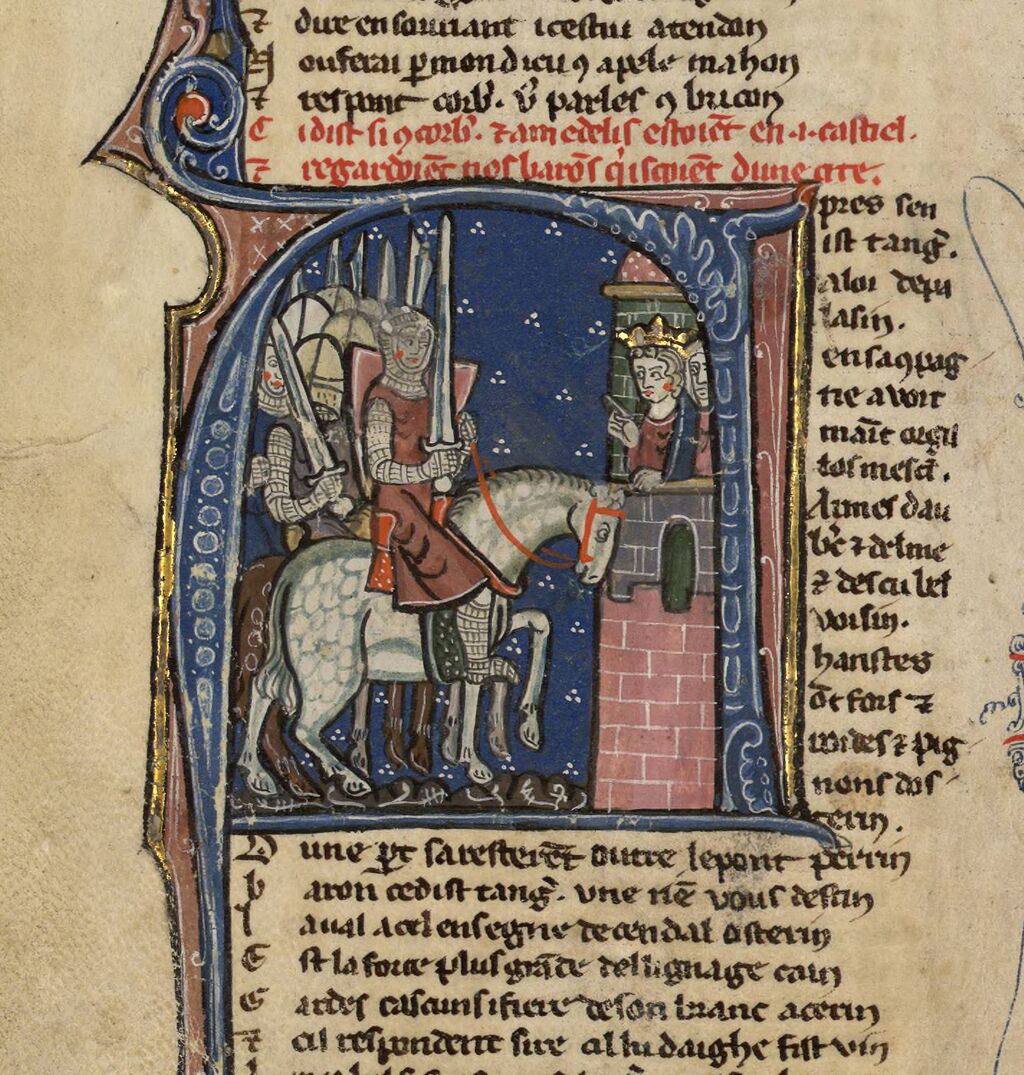 ⁊ dure en souuiant icestui atendon
N ouferai p̲ mon dieu ꝯ apele mahon
⁊ respont corb̃. v̾ parles ꝯ bricon
C i dist si ꝯ corb̃. ⁊ amedelis estoiẽt en .i. castiel.
⁊ regardoiẽt nos barõs q̾ iscoiẽt dune cite.
pres sen
ist tang̾.
Aloi depu
lasin.
en sa ꝯpag
nie avoit
maĩt orgu
los mesc̃.
Armes dau
b̾c ⁊ delme
⁊ descu bel
voisin.
hanstes
õt fors ⁊
roides ⁊ pig
nons dos
terin.
D une p̲t saresterẽt outre le pont perrin
b aron ce dist tang̾. vne riẽ vous destin
l aual a cel ensegne de cendal osterin
E st la force plus grãde del lignage cain
G ardes cascuns i fiere de son branc acerin
⁊ cil respondent sire al lu daighe fist vin